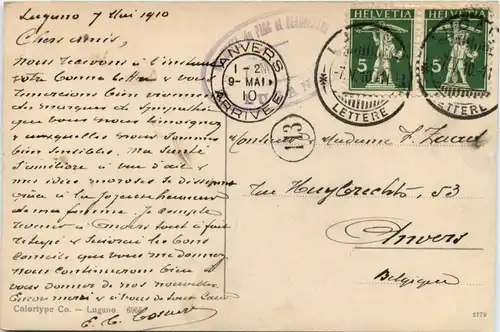 Lugano 7 Mai 1910
Chers amis,
nous recevons à l'instant
votre bonne lettre & vous
remercions bien vivement
des marques de sympathie
que vous nous témoignez
& auxquelles nous sommes
bien sensibles. Ma santé
s'améliore à vue d'œil &
mes idées moroses se dissipent
grâce à la joyeuse humeur
de ma femme. Je compte
revenir à Anvers tout à fait
retapé & suivrai les bons
conseils que vous me donnez.
nous continuerons bien à
vous donner de nos nouvelles.
Encore merci & à vous de tout cœur
E. C.
Colortype Co. — Lugano
ANVERS
1-2
9-MAI
10
ARRIVÉE
HELVETIA HELVETIA
5 5
LETTERE LETTERE
103
Monsieur & Madame F.
Rue Huybrechts, 53
Anvers
Belgique